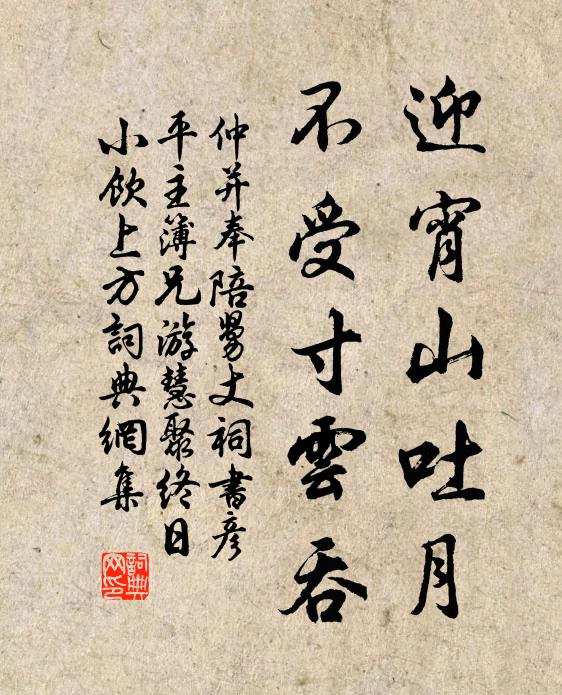 迎宵山吐月
不受寸雲吞
仲并奉陪舅丈祠書彥
平主簿兄游慧聚終日
小飲上方詞典網集
詞典
网印